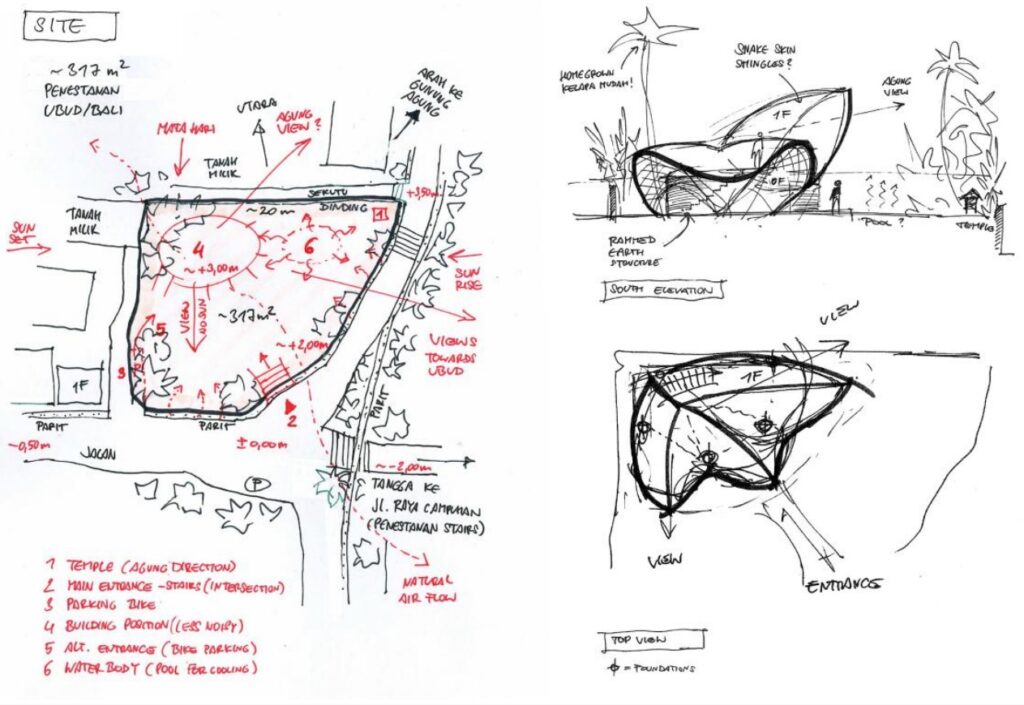 SITE
~317 m²
PENESTANAN
UBUD/BALI
MATA HARI
UTARA
AGUNG
VIEW?
ARAH KE
GUNUNG
AGUNG
TANAH
MILIK
SEKUTU
DINDING
~20 m
+3,50m
1
TANAH
MILIK
SUN
SET
4
~+3,00m
6
SUN
RISE
VIEW
NO SUN
~317m²
~+2,00m
VIEWS
TOWARDS
UBUD
5
3
1F
2
PARIT
PARIT
PARIT
±0,00m
~-0,50m
JALAN
P
~-2,00m
TANGGA KE
JL. RAYA CAMPUHAN
(PENESTANAN STAIRS)
NATURAL
AIR FLOW
1 TEMPLE (AGUNG DIRECTION)
2 MAIN ENTRANCE - STAIRS (INTERSECTION)
3 PARKING BIKE
4 BUILDING POSITION (LESS NOISY)
5 ALT. ENTRANCE (BIKE PARKING)
6 WATER BODY (POOL FOR COOLING)
HOMEGROWN
KELAPA MUDAH!
SNAKE SKIN
SHINGLES?
AGUNG
VIEW
1F
0F
POOL?
TEMPLE
RAMMED
EARTH
STRUCTURE
SOUTH ELEVATION
VIEW
1F
VIEW
ENTRANCE
TOP VIEW
= FOUNDATIONS